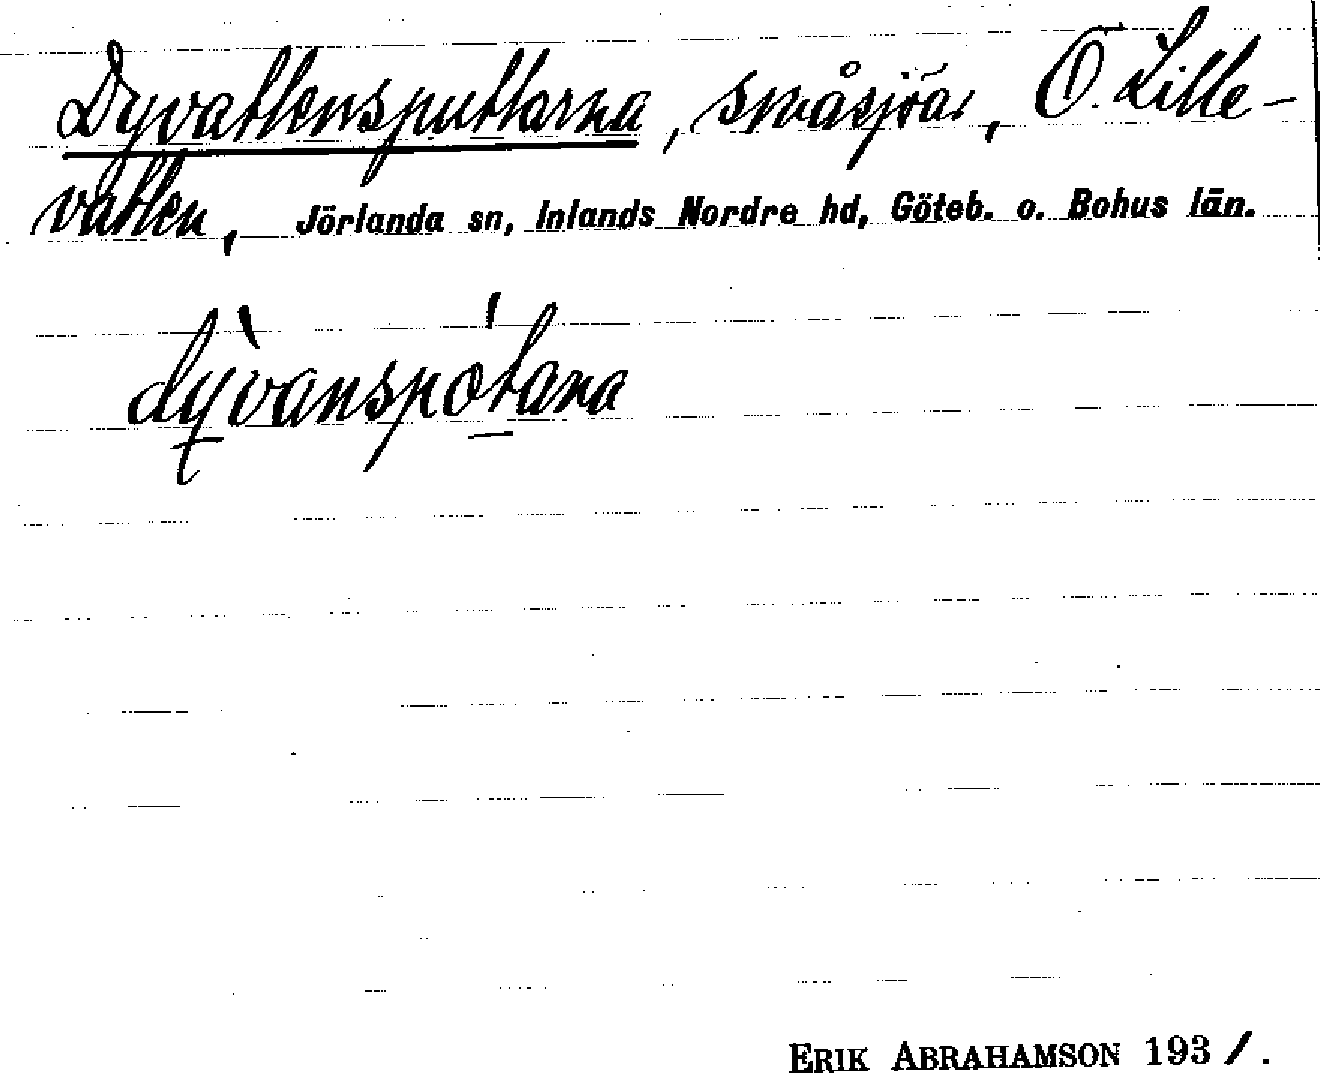 Dyvattensputtarna, småsjöar, Ö. Lille-
vatten, Jörlanda sn, Inlands Nordre hd, Göteb. o. Bohus län.
dỳ̱vanspó̱tana
ERIK ABRAHAMSON 1931.